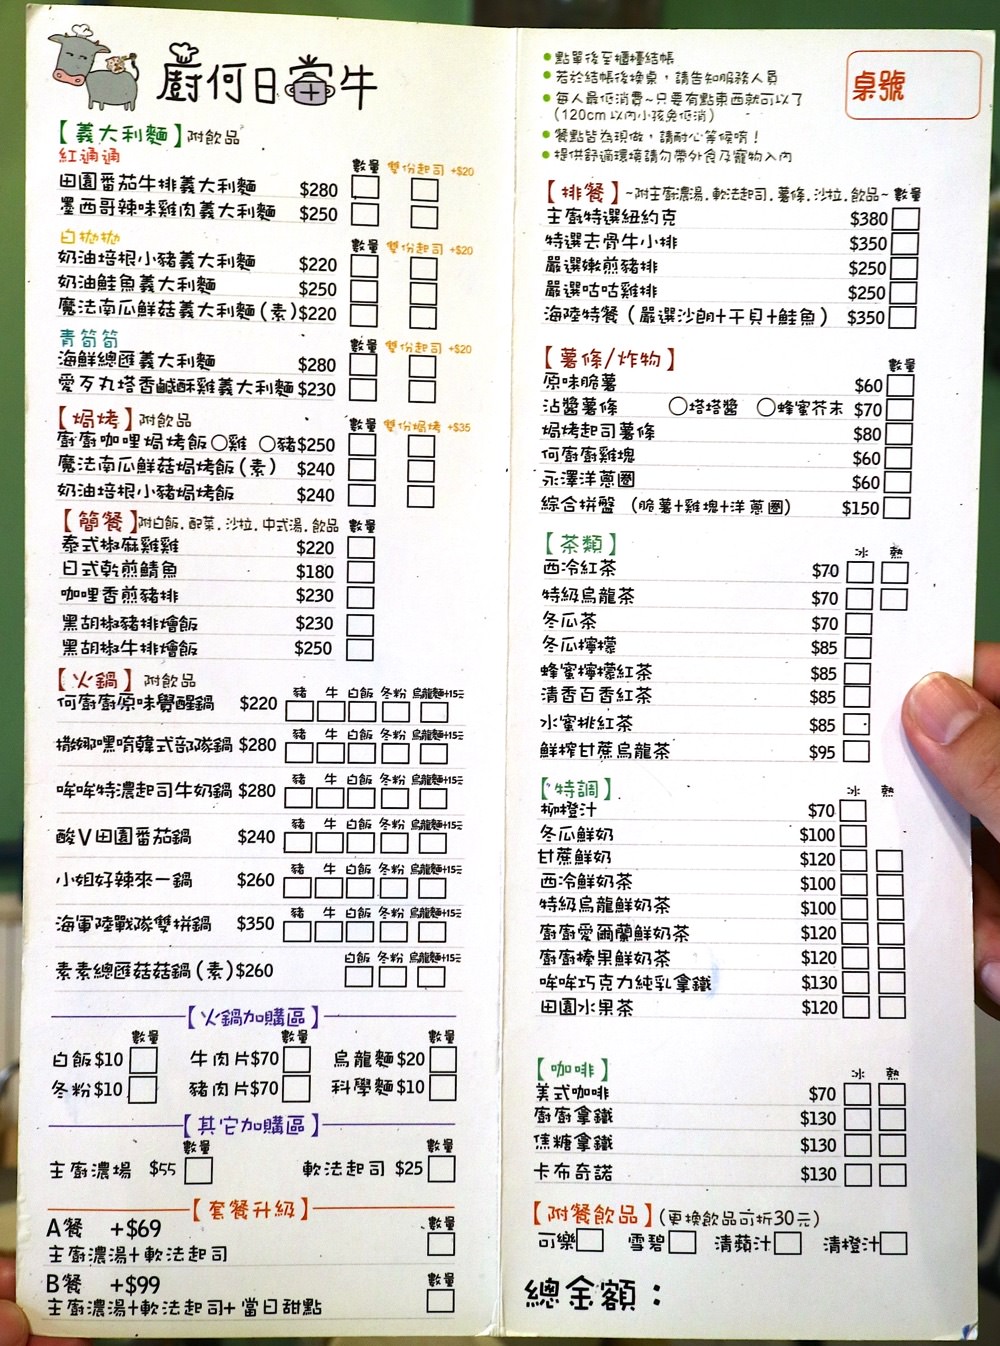 廚何日當牛
【義大利麵】附飲品
紅通通 數量 雙份起司 +$20
田園番茄牛排義大利麵 $280
墨西哥辣味雞肉義大利麵 $250
白拋拋 數量 雙份起司 +$20
奶油培根小豬義大利麵 $220
奶油鮭魚義大利麵 $250
魔法南瓜鮮菇義大利麵(素) $220
青筍筍 數量 雙份起司 +$20
海鮮總匯義大利麵 $280
愛歹丸塔香鹹酥雞義大利麵 $230
【焗烤】附飲品 數量 雙份焗烤 +$35
廚廚咖哩焗烤飯○雞 ○豬 $250
魔法南瓜鮮菇焗烤飯(素) $240
奶油培根小豬焗烤飯 $240
【簡餐】附白飯.配菜.沙拉.中式湯.飲品 數量
泰式椒麻雞雞 $220
日式乾煎鯖魚 $180
咖哩香煎豬排 $230
黑胡椒豬排燴飯 $230
黑胡椒牛排燴飯 $250
【火鍋】附飲品
何廚廚原味覺醒鍋 $220 豬 牛 白飯 冬粉 烏龍麵+15元
撒娜嘿唷韓式部隊鍋 $280 豬 牛 白飯 冬粉 烏龍麵+15元
哞哞特濃起司牛奶鍋 $280 豬 牛 白飯 冬粉 烏龍麵+15元
酸V田園番茄鍋 $240 豬 牛 白飯 冬粉 烏龍麵+15元
小姐好辣來一鍋 $260 豬 牛 白飯 冬粉 烏龍麵+15元
海軍陸戰隊雙拼鍋 $350 豬 牛 白飯 冬粉 烏龍麵+15元
素素總匯菇菇鍋(素) $260 白飯 冬粉 烏龍麵+15元
【火鍋加購區】
數量 數量 數量
白飯 $10 牛肉片 $70 烏龍麵 $20
冬粉 $10 豬肉片 $70 科學麵 $10
【其它加購區】
數量 數量
主廚濃場 $55 軟法起司 $25
【套餐升級】
A餐 +$69 數量
主廚濃湯+軟法起司
B餐 +$99 數量
主廚濃湯+軟法起司+當日甜點
•點單後至櫃檯結帳
•若於結帳後換桌，請告知服務人員
•每人最低消費~只要有點東西就可以了
(120cm以內小孩免低消)
•餐點皆為現做，請耐心等候唷！
•提供舒適環境請勿帶外食及寵物入內
桌號
【排餐】~附主廚濃湯.軟法起司.薯條.沙拉.飲品~ 數量
主廚特選紐約克 $380
特選去骨牛小排 $350
嚴選嫩煎豬排 $250
嚴選咕咕雞排 $250
海陸特餐（嚴選沙朗+干貝+鮭魚） $350
【薯條/炸物】 數量
原味脆薯 $60
沾醬薯條 ○塔塔醬 ○蜂蜜芥末 $70
焗烤起司薯條 $80
何廚廚雞塊 $60
永澤洋蔥圈 $60
綜合拼盤（脆薯+雞塊+洋蔥圈） $150
【茶類】 冰 熱
西冷紅茶 $70
特級烏龍茶 $70
冬瓜茶 $70
冬瓜檸檬 $85
蜂蜜檸檬紅茶 $85
清香百香紅茶 $85
水蜜桃紅茶 $85
鮮榨甘蔗烏龍茶 $95
【特調】 冰 熱
柳橙汁 $70
冬瓜鮮奶 $100
甘蔗鮮奶 $120
西冷鮮奶茶 $100
特級烏龍鮮奶茶 $100
廚廚愛爾蘭鮮奶茶 $120
廚廚榛果鮮奶茶 $120
哞哞巧克力純乳拿鐵 $130
田園水果茶 $120
【咖啡】 冰 熱
美式咖啡 $70
廚廚拿鐵 $130
焦糖拿鐵 $130
卡布奇諾 $130
【附餐飲品】(更換飲品可折30元)
可樂 雪碧 清蘋汁 清橙汁
總金額：